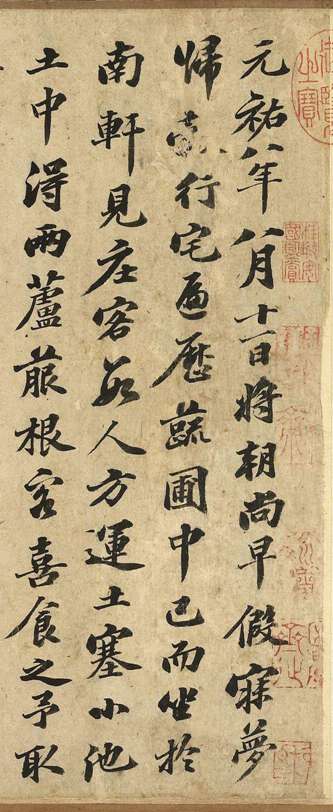 元祐八年八月十一日將朝尚早假寐夢
歸行宅遍歷蔬圃中已而坐於
南軒見庄客數人方運土塞小池
土中得兩蘆菔根客喜食之予取